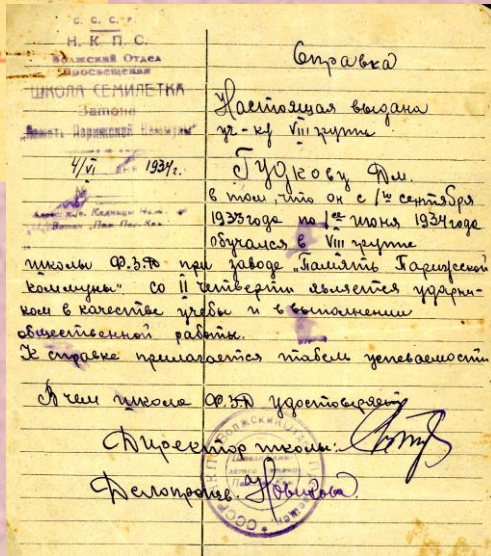 С. С. С. Р.
Н. К. П. С.
Волжский Отдел
Просвещения
ШКОЛА СЕМИЛЕТКА
Затона
„Память Парижской Коммуны"
4/VI дня 1934г.
Справка
Настоящая выдана
уч-ку VIII группы
Гудкову Дм.
в том, что он с 1го сентября
1933 года по 1ое июня 1934 года
обучался в VIII группе
школы Ф.З.Д при заводе „Память Парижской
коммуны" со II четверти является ударни-
ком в качестве учебы и в выполнении
общественной работы.
К справке прилагается табель успеваемости
В чем школа Ф.З.Д удостоверяет
Директор школы:
Делопроизв. Новикова